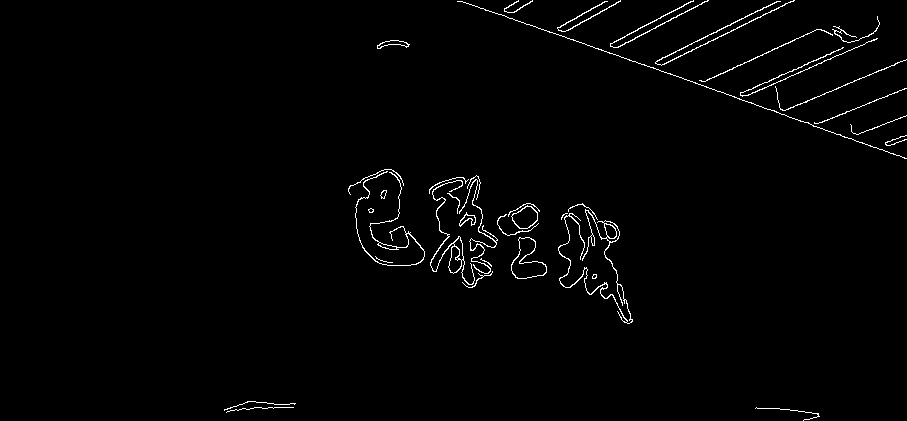 巴黎之城